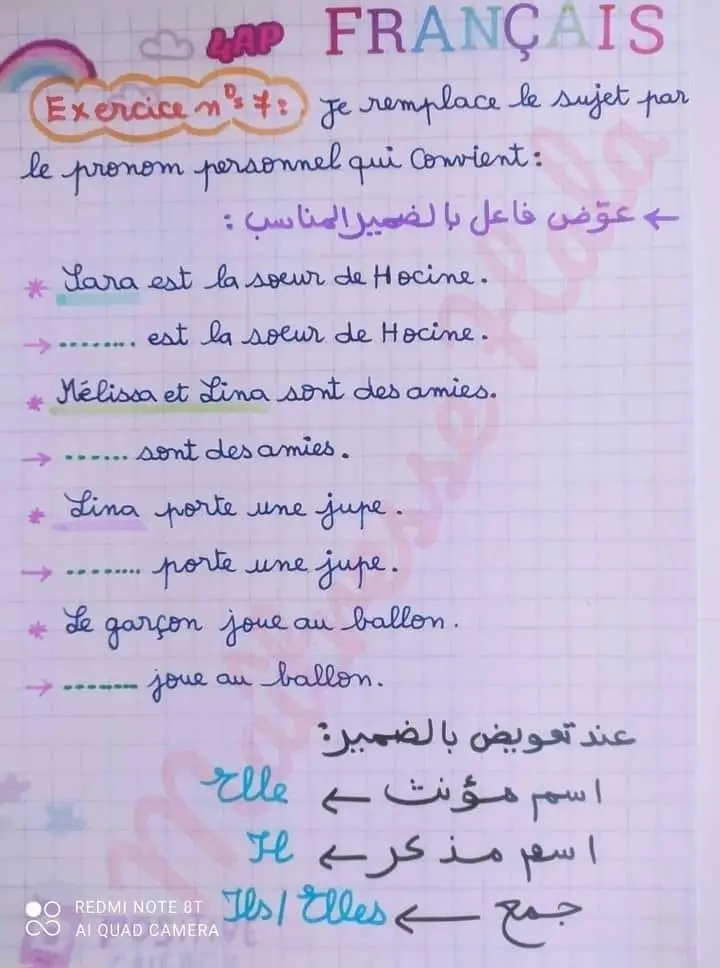 4AP FRANÇAIS
Exercice n°= 7: Je remplace le sujet par
le pronom personnel qui Convient:
← عوّض فاعل بالضمير المناسب :
* Sara est la soeur de Hocine.
→ ........ est la soeur de Hocine.
* Mélissa et Lina sont des amies.
→ ...... sont des amies.
* Lina porte une jupe.
→ ........ porte une jupe.
* Le garçon joue au ballon.
→ ........ joue au ballon.
عند تعويض بالضمير:
اسم مؤنث ← Elle
اسم مذكر ← Il
جمع ← Ils / Elles
Maîtresse Hala
REDMI NOTE 8T
AI QUAD CAMERA